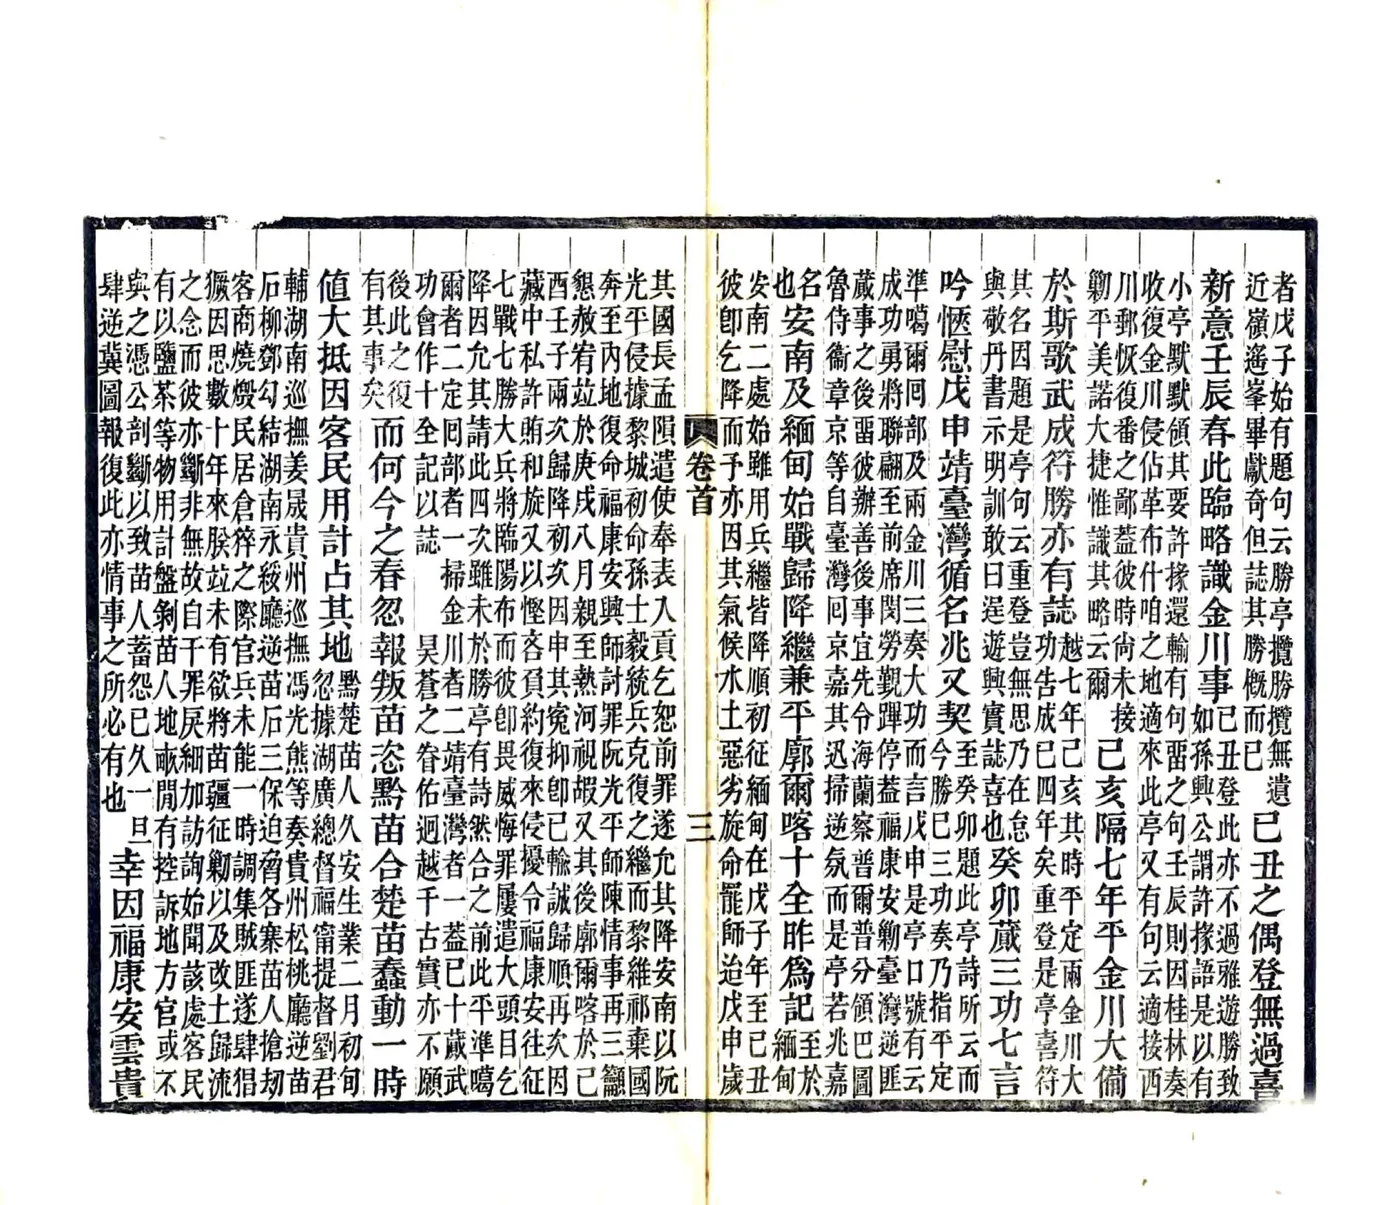 者戊子始有題句云勝亭攬勝攬無遺
近嶺遙峯畢獻奇但誌其勝槪而已
己丑之偶登無過喜
新意壬辰春此臨略識金川事
己丑登此亦不過雅遊勝致
如孫興公謂許掾語是以有
小亭默默領其要許掾還輸有句畱之句壬辰則因桂林奏
收復金川侵佔革布什咱之地適來此亭又有句云適接西
川郵恢復番之鄙蓋彼時尙未接
勦平美諾大捷惟識其略云爾
己亥隔七年平金川大備
於斯歌武成符勝亦有誌
越七年己亥其時平定兩金川大
功告成已四年矣重登是亭喜符
其名因題是亭句云重登豈無思乃在怠
與敬丹書示明訓敢曰逞遊興實誌喜也
癸卯蕆三功七言
吟愜慰戊申靖臺灣循名兆又契
至癸卯題此亭詩所云而
今勝巳三功奏乃指平定
準噶爾囘部及兩金川三奏大功而言戊申是亭口號有云
成功勇將聯翩至前席閔勞覲蹕停蓋福康安勦臺灣逆匪
蕆事之後畱彼辦善後事宜先令海蘭察普爾普分領巴圖
魯侍衞章京等自臺灣囘京嘉其迅掃逆氛而是亭若兆嘉
名
也
安南及緬甸始戰歸降繼兼平廓爾喀十全昨爲記
至於
緬甸
安南二處始雖用兵繼皆降順初征緬甸在戊子年至己丑
彼卽乞降而予亦因其氣候水土惡劣旋命罷師迨戊申歲
卷首
三
其國長孟隕遣使奉表入貢乞恕前罪遂允其降安南以阮
光平侵據黎城初命孫士毅統兵克復之繼而黎維祁棄國
奔至內地復命福康安興師討罪阮光平師陳情事再三籲
懇赦宥竝於庚戌八月親至熱河祝嘏又其後廓爾喀於己
酉壬子兩次歸降初次因申其寃抑卽已輸誠歸順再次因
藏中私許賄和旋又以慳吝頁約復來侵擾令福康安往征
七戰七勝大兵將臨陽布而彼卽畏威悔罪屢遣大頭目乞
降因允其請此四次雖未於勝亭有詩然合之前此平準噶
爾者二定囘部者一掃金川者二靖臺灣者一蓋已十蕆武
功會作十全記以誌 昊蒼之眷佑迥越千古實亦不願
後此之復
有其事矣
而何今之春忽報叛苗恣黔苗合楚苗蠢動一時
値大抵因客民用計占其地
黔楚苗人久安生業二月初旬
忽據湖廣總督福甯提督劉君
輔湖南巡撫姜晟貴州巡撫馮光熊等奏貴州松桃廳逆苗
石柳鄧勾結湖南永綏廳逆苗石三保迫脅各寨苗人搶劫
客商燒燬民居倉猝之際官兵未能一時調集賊匪遂肆猖
獗因思數十年來朕竝未有欲將苗疆征勦以及改土歸流
之念而彼亦斷非無故自干罪戾細加訪詢始聞該處客民
有以鹽茶等物用計盤剝苗人地畝閒有控訴地方官或不
與之憑公剖斷以致苗人蓄怨已久一旦
肆逆冀圖報復此亦情事之所必有也
幸因福康安雲貴